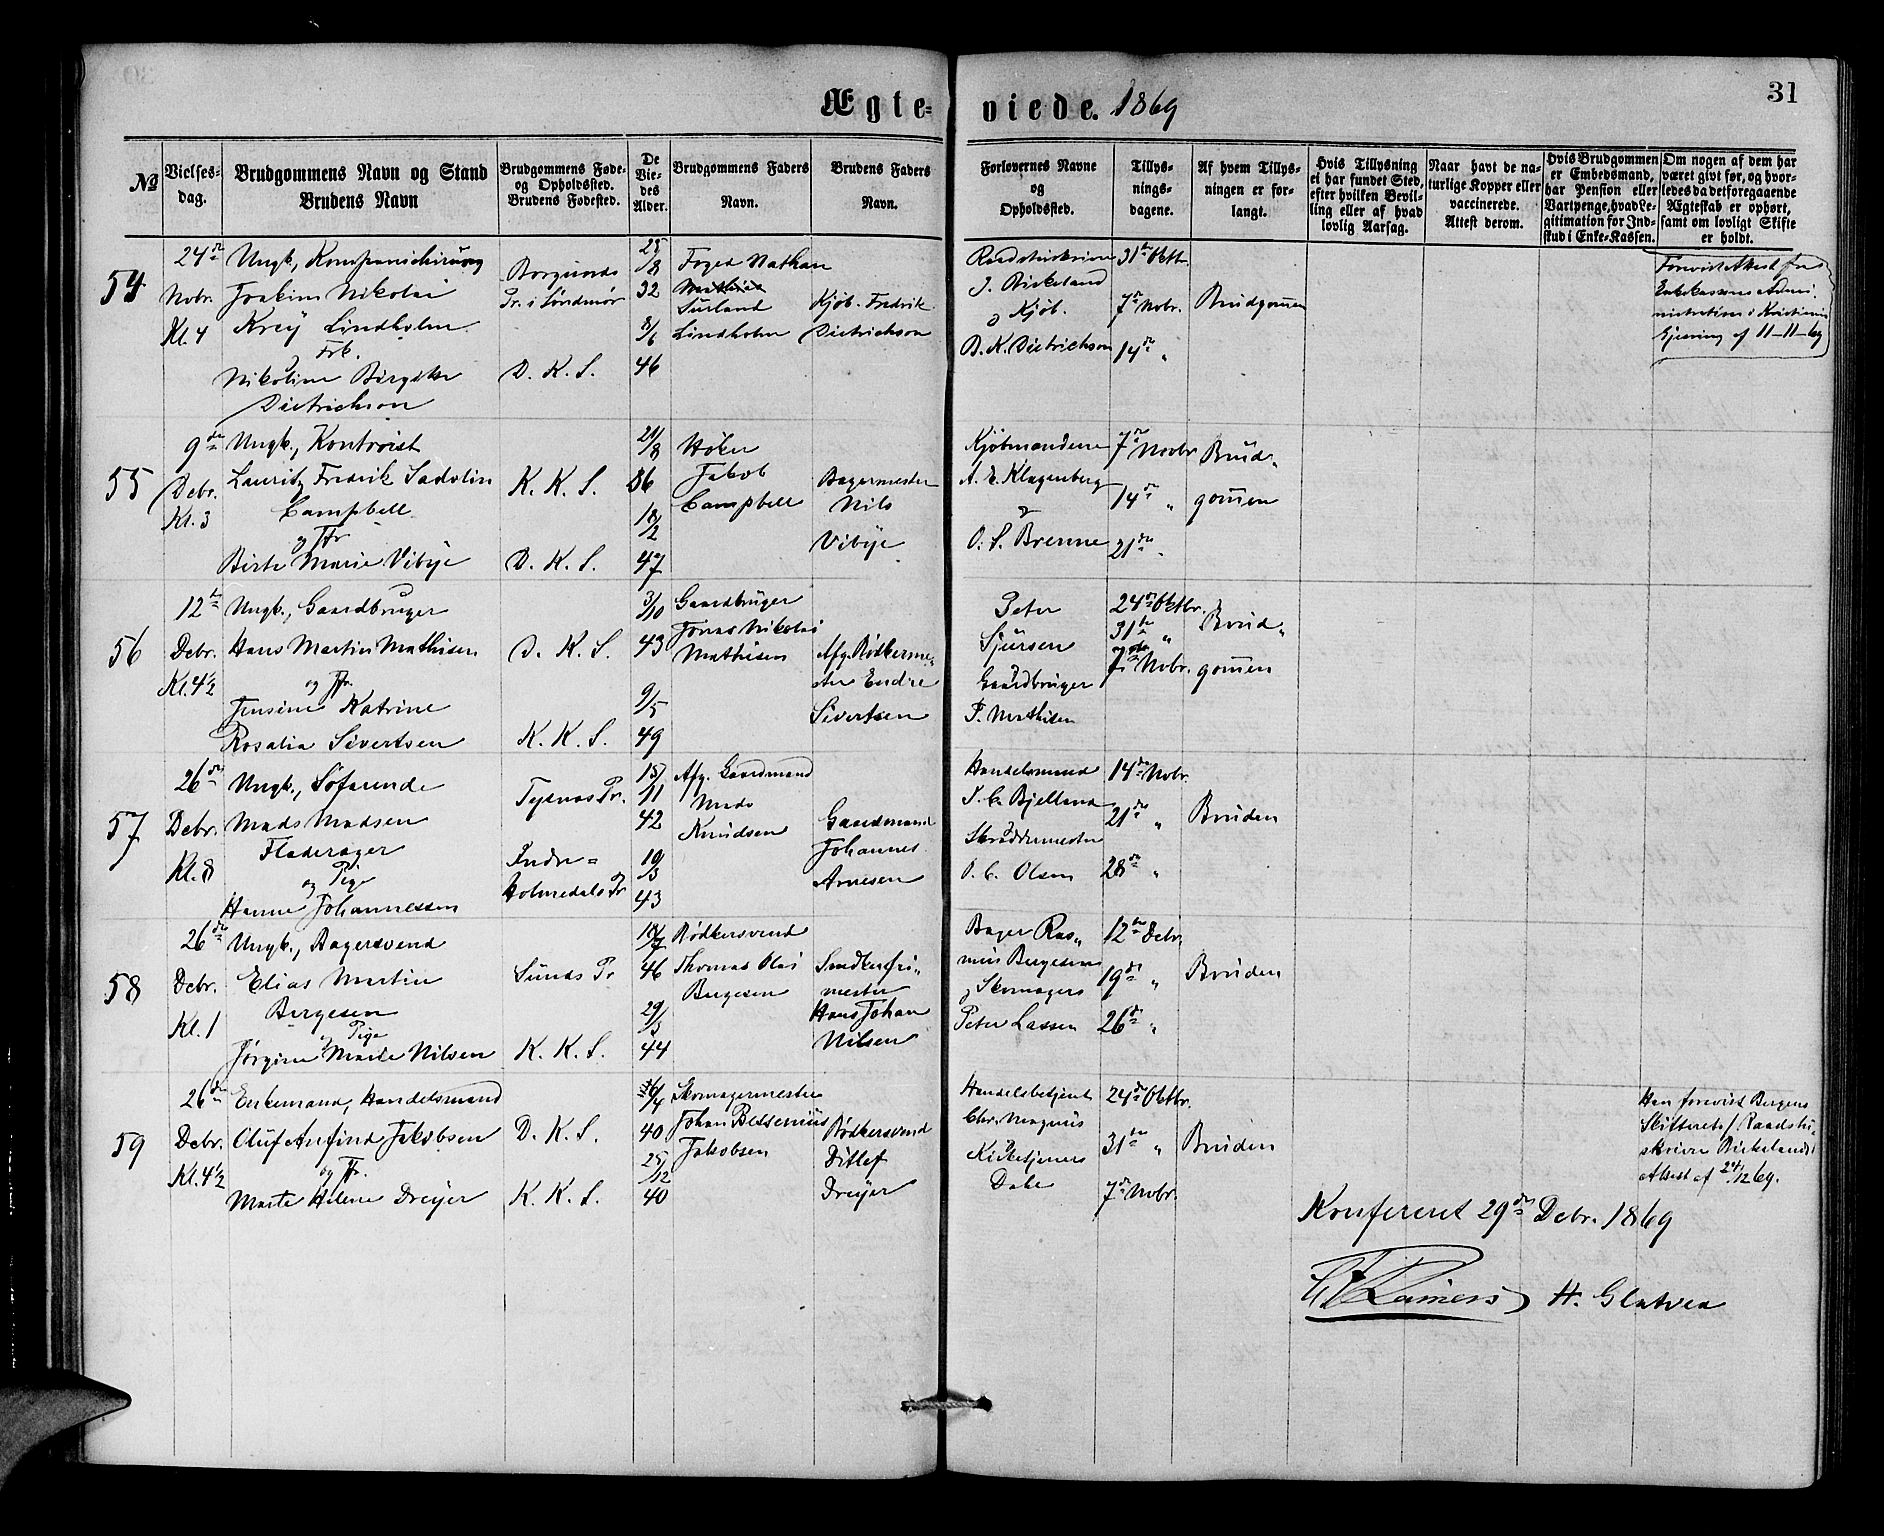 31
Ægte= viede. 1869
No
Vielses=
dag.
Brudgommens Navn og Stand
Brudens Navn
Brudgommens Føde=
og Opholdssted.
Brudens Fødested.
De
Vie=
des
Alder.
Brudgommens Faders
Navn.
Brudens Faders
Navn.
Forlovernes Navne
og
Opholdssted.
Tillys=
nings=
dagene.
Af hvem Tillys=
ningen er for=
langt.
Hvis Tillysning
ei har fundet Sted,
efter hvilken Bevil=
ling eller af hvad
lovlig Aarsag.
Naar havt de na=
turlige Kopper eller
vaccinerede.
Attest derom.
Hvis Brudgommen
er Embedsmand,
har Pension eller
Vartpenge, hvad Le=
gitimation for Ind=
skud i Enke=Kassen.
Om nogen af dem har
været givt før, og hvor=
ledes da det foregaaende
Ægteskab er ophørt,
samt om lovligt Skifte
er holdt.
54
24de
Nobr.
Kl. 4
Ungk., Kompanichirurg
Joakim Nikolai
Krey Lindholm
Frk.
Nikoline Birgitte
Dietrichson
Borgunds
Pr. i Søndmør
D. K. S.
25/8
32
8/6
46
Foged Nathan
Lindholm
Kjøb. Fredrik
Dietrichson
J. Birkeland
og Kjøb.
B. K. Dietrichson
31te Oktb.
7de Nobr.
14de "
Brudgom̄en
af 11-11-69
55
9de
Debr.
Kl. 3
Ungk., Kontorist
Lauritz Fredrik Sadolin
Campbell
og Jfr
Birte Marie Vibye
K. K. S.
D. K. S.
21/8
36
18/2
47
Høker
Jakob
Campbell
Bagermester
Nils
Vibye
Kjøbmændene
A. E. Klagenberg
og
O. S. Brenne
7de Novbr
14de "
21de "
Brud=
gom̄en
56
12te
Debr.
Kl. 4½
Ungk., Gaardbruger
Hans Martin Mathisen
og Jfr.
Jensine Katrine
Rosalia Sivertsen
D. K. S.
K. K. S.
3/10
43
9/5
49
Gaardbruger
Jonas Nikolai
Mathisen
Afg. Bødkerme=
ster Endre
Sivertsen
Peter
Sjursen
og
Gaardbruger
P. Mathisen
24de Oktbr.
31te "
7de Nobr.
Brud=
gom̄en
57
26de
Debr.
Kl. 8
Ungk., Søfarende
Mads Madsen
Fladerager
og Pige
Hanne Johannessen
Tysnæs Pr.
Indre=
Holmedals Pr
15/11
42
19/3
43
Afg. Gaardmand
Mads
Knudsen
Gaardmand
Johannes
Arnesen
Handelsmand
S. C. Bjelland
og
Skræddermester
O. C. Olsen
14de Nobr.
21de "
28de "
Bruden
58
26de
Debr.
Kl. 1
Ungk., Bagersvend
Elias Martin
Bergesen
og Pige
Jørgine Marie Nilsen
Sunds Pr
K. K. S.
18/7
46
29/3
44
Bødkersvend
Thomas Olai
Bergesen
mester
Hans Johan
Nilsen
Bager Ras=
mus Bergesen
og Skomager
Peter Lassen
12te Debr.
19de "
26de "
Bruden
59
26de
Debr.
Kl. 4½
Enkemand, Handelsmand
Oluf Anfind Jakobsen
og Jfr.
Marte Helene Dreyer
D. K. S.
K. K. S.
40
25/12
40
Skomagermester
Johan
Jakobsen
Bødkersvend
Ditlef
Dreyer
Handelsbetjent
Chr. Magnus
og
Kirketjener
Dale
24de Oktbr.
31te "
7de Nobr.
Bruden
Han forevist Bergens
Skifterets / Raadstu=
skriver Birkelands
Attest af 24/12 69.
Konfereret 29de Debr. 1869
H. Glatved